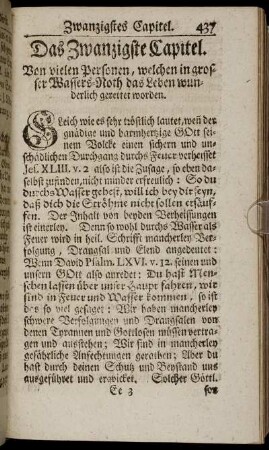 Zwanzigstes Capitel. 437
Das Zwanzigste Capitel.
Von vielen Personen, welchen in gros-
ser Wassers-Noth das Leben wun-
derlich gerettet worden.
Gleich wie es sehr tröstlich lautet, weñ der
gnädige und barmhertzige GOtt seinem
Volcke einen sichern und un-
schädlichen Durchgang durchs Feuer verheisset
Jes. XLIII. v. 2 also ist die Zusage, so eben da-
selbst zufinden, nicht minder erfreulich: So du
durchs Wasser gehest, will ich bey dir seyn,
daß dich die Ströhme nicht sollen ersäuf-
fen. Der Inhalt von beyden Verheissungen
ist einerley. Denn so wohl durchs Wasser als
Feuer wird in heil. Schrifft mancherley Ver-
folgung, Drangsal und Elend angedeutet:
Wenn David Psalm. LXVI. v. 12. seinen und
unsern GOtt also anredet: Du hast Men-
schen lassen über unser Haupt fahren, wir
sind in Feuer und Wasser kommen, so ist
das so viel gesaget: Wir haben mancherley
schwere Verfolgungen und Drangsalen von
denen Tyrannen und Gottlosen müssen vertra-
gen und ausstehen; Wir sind in mancherley
gefährliche Anfechtungen gerathen; Aber du
hast durch deinen Schutz und Beystand uns
ausgeführet und erquicket. Solcher Göttl.
Ee 3 for